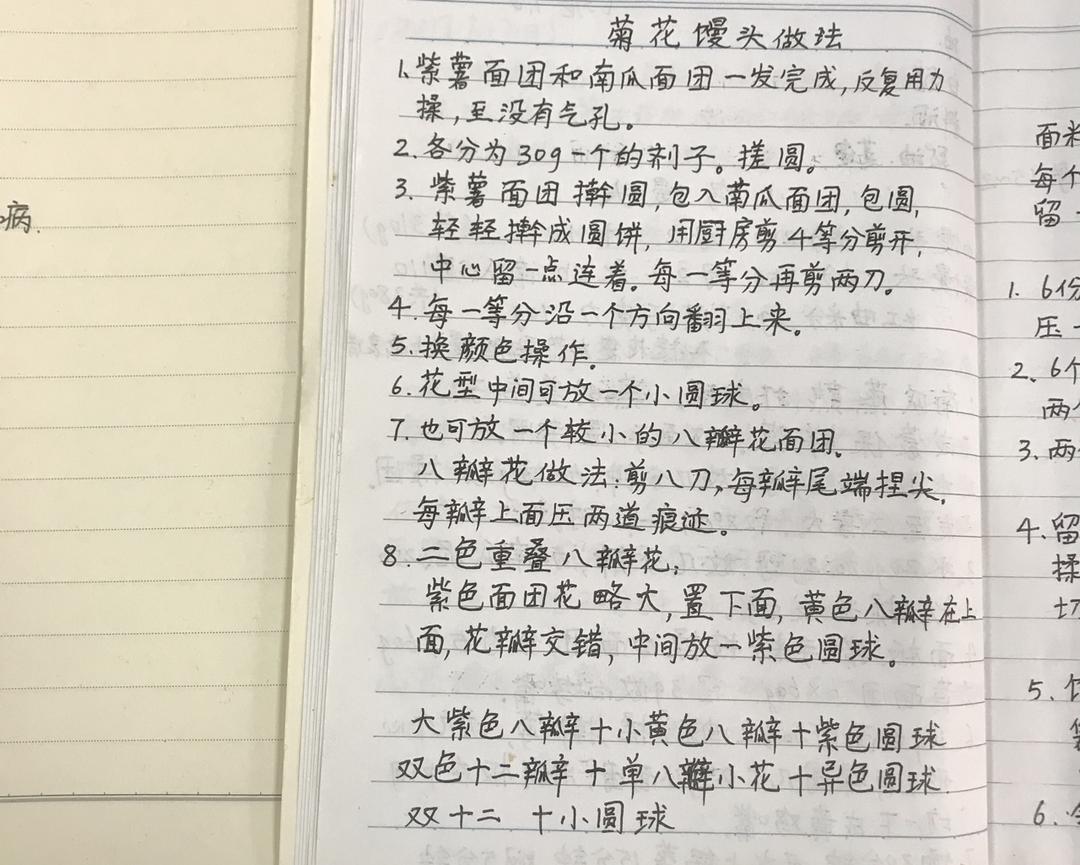 菊花馒头做法
1. 紫薯面团和南瓜面团一发完成,反复用力
操,至没有气孔。
2. 各分为30g一个的剂子。搓圆。
3. 紫薯面团擀圆,包入南瓜面团,包圆,
轻轻擀成圆饼,用厨房剪4等分剪开,
中心留一点连着。每一等分再剪两刀。
4. 每一等分沿一个方向翻上来。
5. 换颜色操作。
6. 花型中间可放一个小圆球。
7. 也可放一个较小的八瓣花面团。
八瓣花做法:剪八刀,每瓣尾端捏尖,
每瓣上面压两道痕迹。
8. 二色重叠八瓣花;
紫色面团花略大,置下面,黄色八瓣在上
面,花瓣交错,中间放一紫色圆球。
大紫色八瓣+小黄色八瓣+紫色圆球
双色十二瓣+单八瓣小花+异色圆球
双十二 +小圆球
病.
面
每个
留一
1. 6份
压一
2. 6个
两个
3. 两
4. 留
揉
切
5.
6.